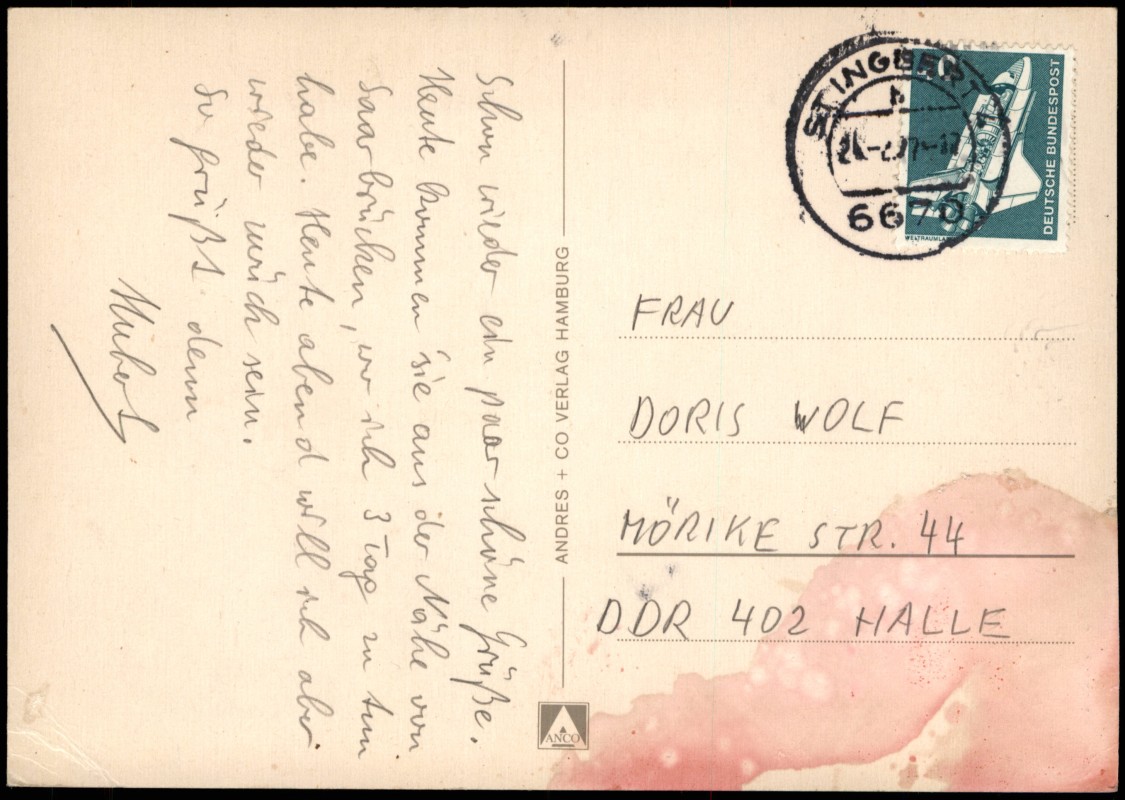 Schon wieder ein paar schöne Grüße.
Heute kommen sie aus der Nähe von
Saarbrücken, wo ich 3 Tag zu tun
habe. Heute abend will ich aber
wieder zurück sein.
So grüßt denn
ANDRES + CO VERLAG HAMBURG
ANCO
ST. INGBERT 1
h
6670
DEUTSCHE BUNDESPOST
FRAU
DORIS WOLF
MÖRIKE STR. 44
DDR 402 HALLE